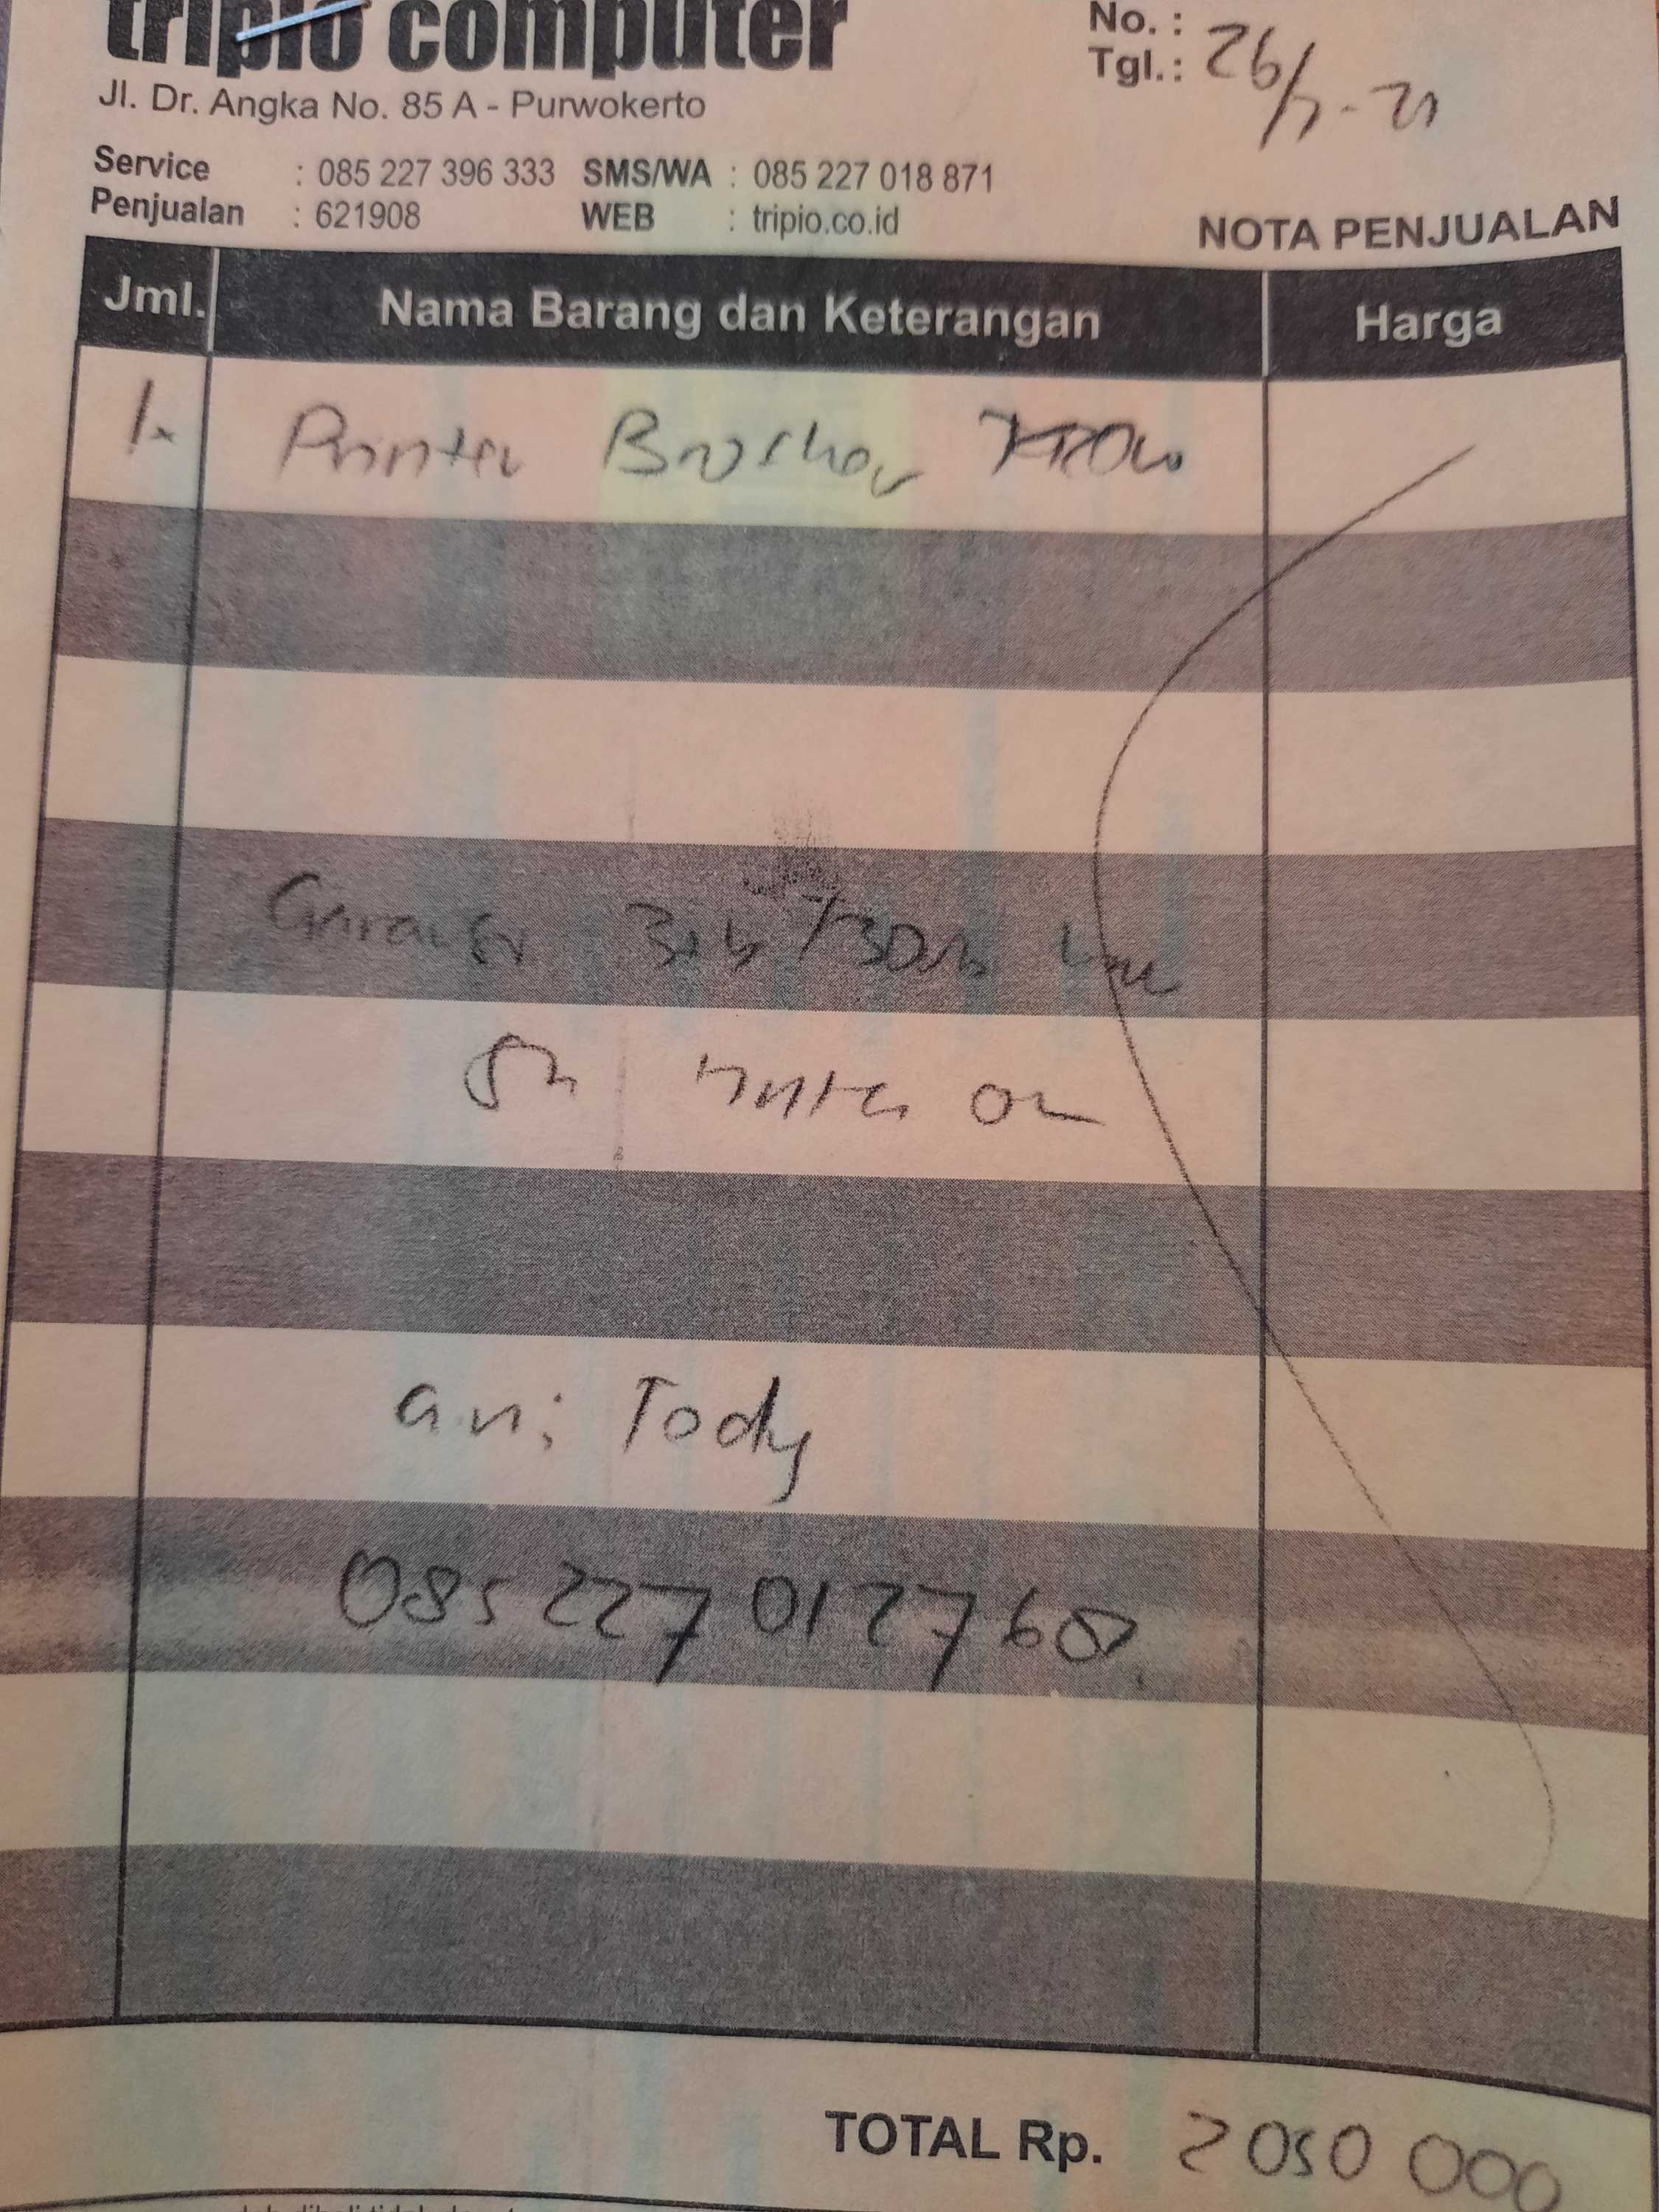 tripio computer
No. :
Jl. Dr. Angka No. 85 A - Purwokerto
Tgl. : 26/
Service : 085 227 396 333 SMS/WA : 085 227 018 871
Penjualan : 621908 WEB : tripio.co.id
NOTA PENJUALAN
Jml. Nama Barang dan Keterangan Harga
1. Printer Brother
Garansi
an; Tody
085 227 012760
TOTAL Rp. 2050 000